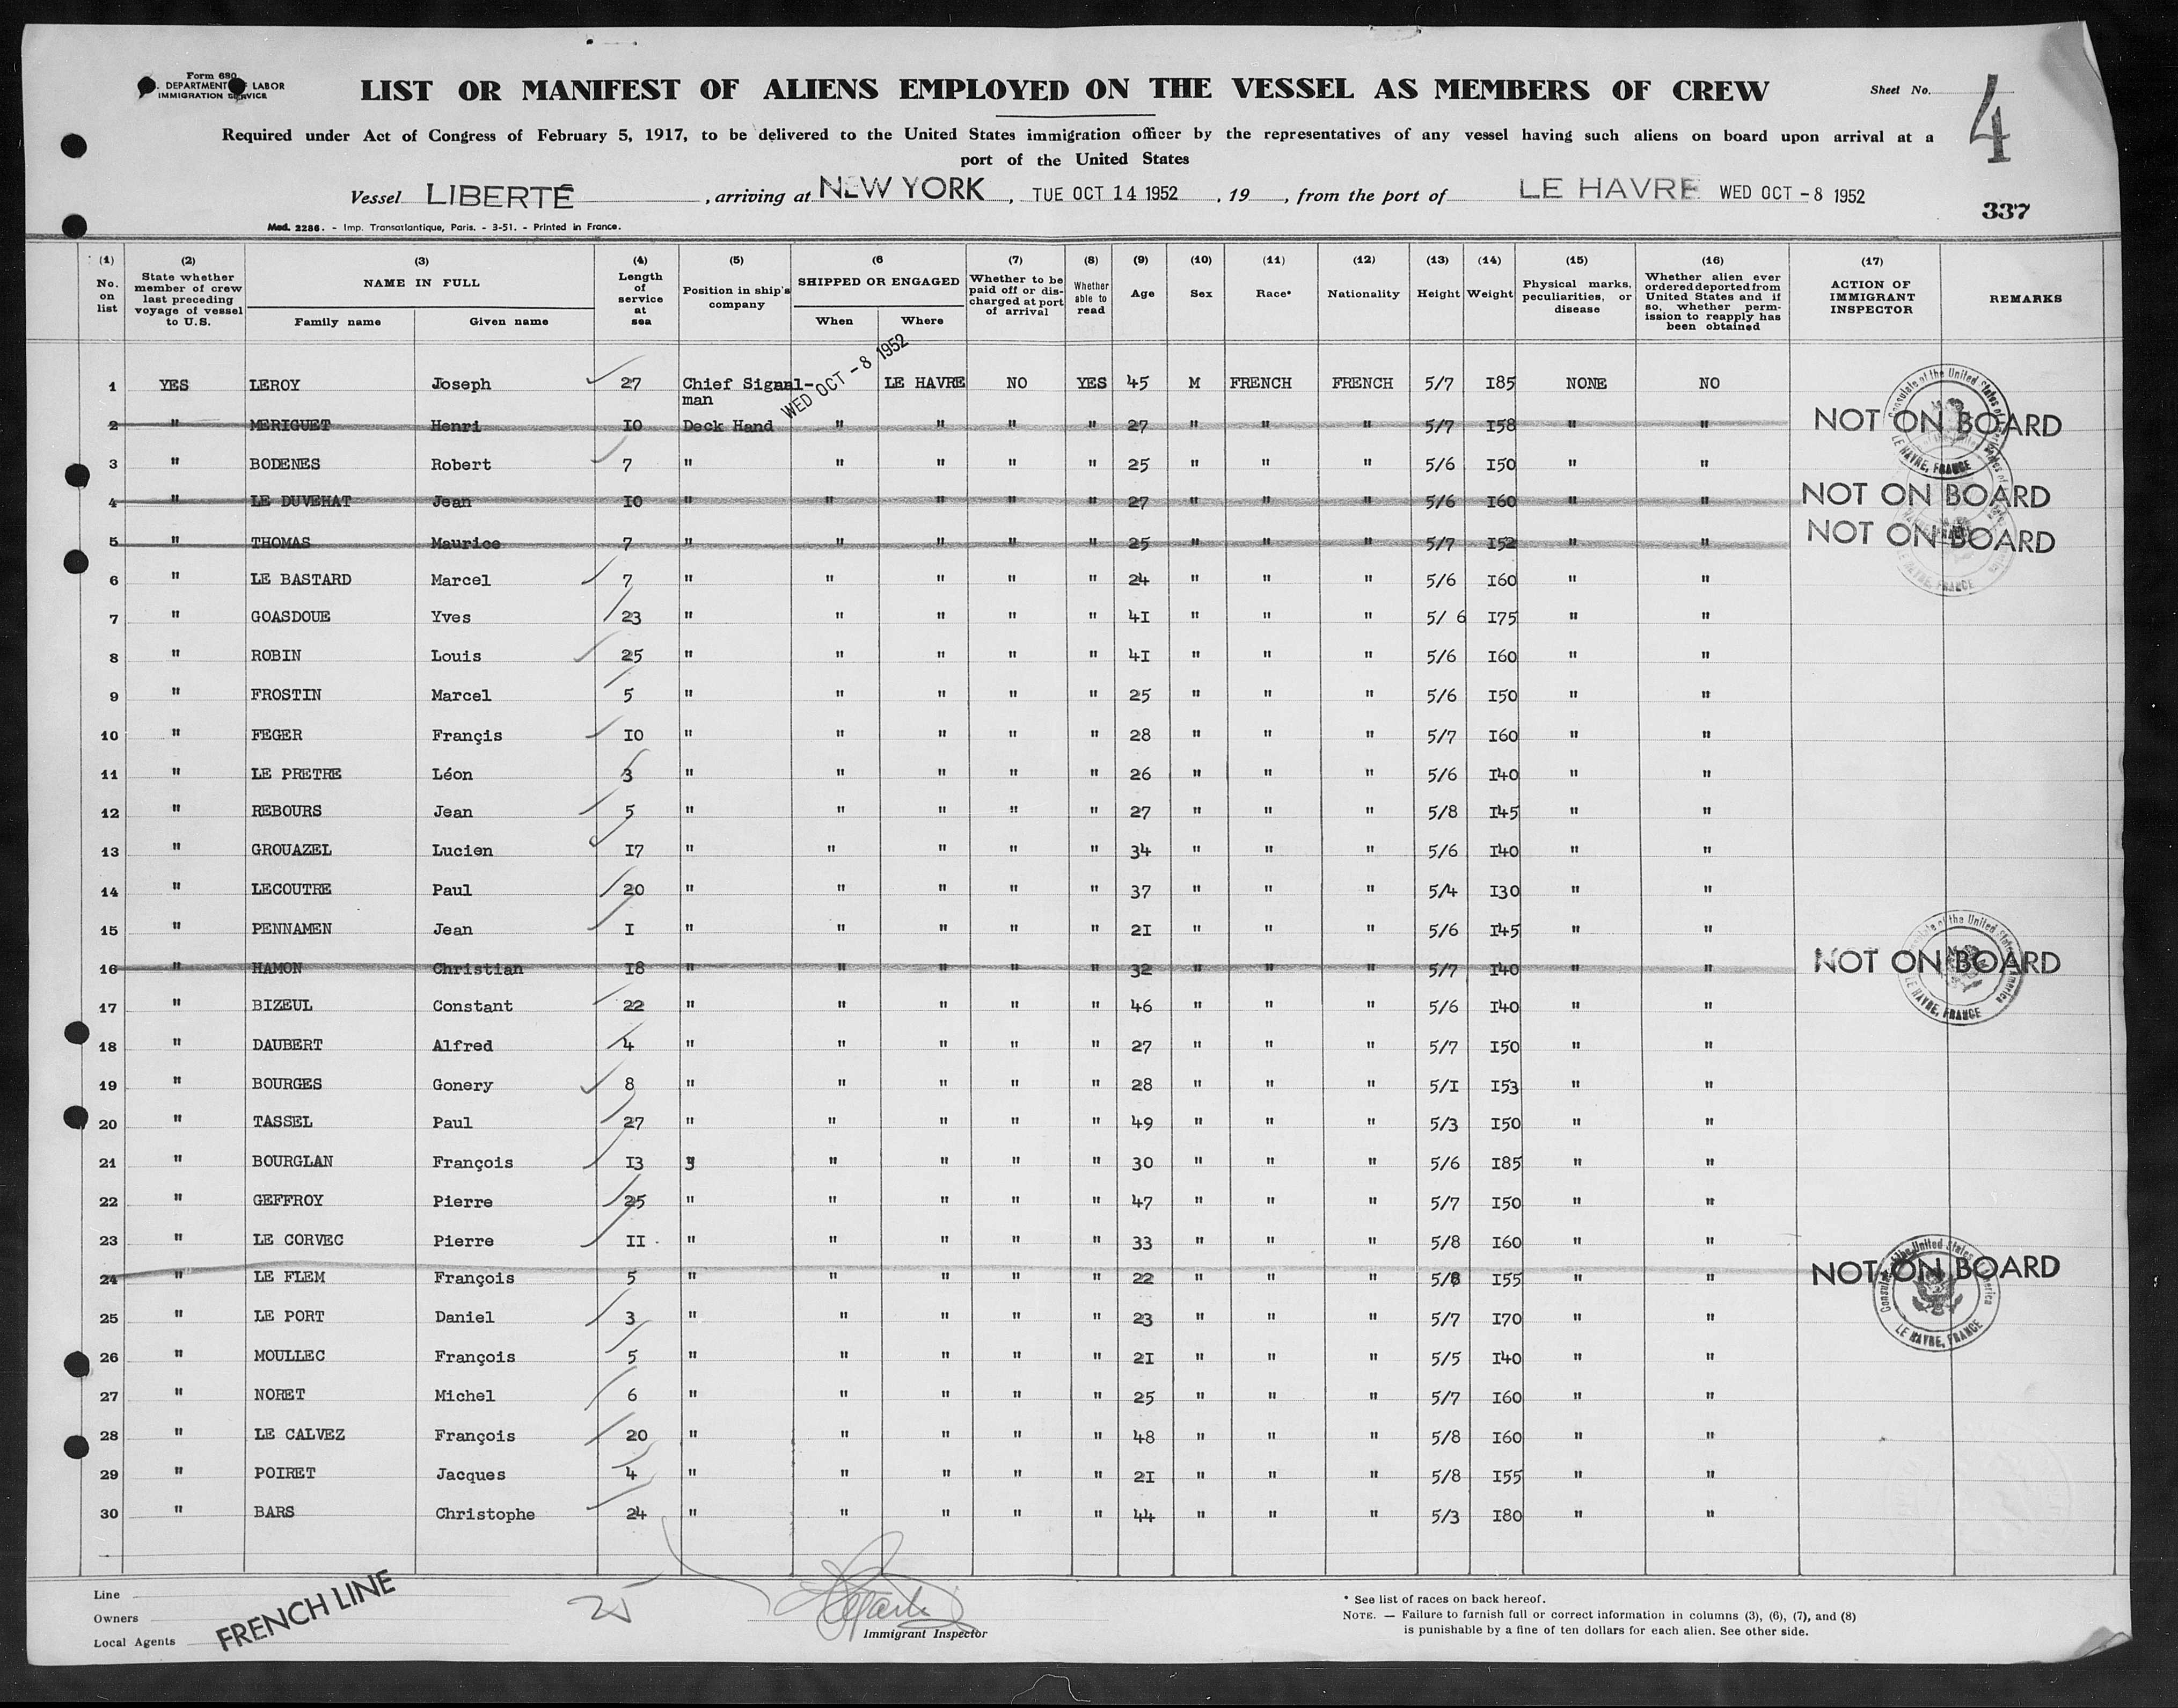 Form 680
DEPARTMENT OF LABOR
IMMIGRATION SERVICE
LIST OR MANIFEST OF ALIENS EMPLOYED ON THE VESSEL AS MEMBERS OF CREW
Sheet No. 4
Required under Act of Congress of February 5, 1917, to be delivered to the United States immigration officer by the representatives of any vessel having such aliens on board upon arrival at a
port of the United States
Vessel LIBERTÉ, arriving at NEW YORK, TUE OCT 14 1952, 19 , from the port of LE HAVRE WED OCT -8 1952
337
Mod. 2286. - Imp. Transatlantique, Paris. - 3-51. - Printed in France.
(1) No. on list
(2) State whether member of crew last preceding voyage of vessel to U.S.
(3) NAME IN FULL
Family name
Given name
(4) Length of service at sea
(5) Position in ship's company
(6 SHIPPED OR ENGAGED
When
Where
(7) Whether to be paid off or discharged at port of arrival
(8) Whether able to read
(9) Age
(10) Sex
(11) Race*
(12) Nationality
(13) Height
(14) Weight
(15) Physical marks, peculiarities, or disease
(16) Whether alien ever ordered deported from United States and if so, whether permission to reapply has been obtained
(17) ACTION OF IMMIGRANT INSPECTOR
REMARKS
WED OCT -8 1952
1 YES LEROY Joseph 27 Chief Signal-man LE HAVRE NO YES 45 M FRENCH FRENCH 5/7 I85 NONE NO
2 " MERIGUET Henri IO Deck Hand " " " " 27 " " " 5/7 I58 " " NOT ON BOARD
3 " BODENES Robert 7 " " " " " 25 " " " 5/6 I50 " "
4 " LE DUVEHAT Jean IO " " " " " 27 " " " 5/6 I60 " " NOT ON BOARD
5 " THOMAS Maurice 7 " " " " " 25 " " " 5/7 I52 " " NOT ON BOARD
6 " LE BASTARD Marcel 7 " " " " " 24 " " " 5/6 I60 " "
7 " GOASDOUE Yves 23 " " " " " 4I " " " 5/ 6 I75 " "
8 " ROBIN Louis 25 " " " " " 4I " " " 5/6 I60 " "
9 " FROSTIN Marcel 5 " " " " " 25 " " " 5/6 I50 " "
10 " FEGER Françis IO " " " " " 28 " " " 5/7 I60 " "
11 " LE PRETRE Léon 3 " " " " " 26 " " " 5/6 I40 " "
12 " REBOURS Jean 5 " " " " " 27 " " " 5/8 I45 " "
13 " GROUAZEL Lucien I7 " " " " " 34 " " " 5/6 I40 " "
14 " LECOUTRE Paul 20 " " " " " 37 " " " 5/4 I30 " "
15 " PENNAMEN Jean I " " " " " 2I " " " 5/6 I45 " "
16 " HAMON Christian I8 " " " " " 32 " " " 5/7 I40 " " NOT ON BOARD
17 " BIZEUL Constant 22 " " " " " 46 " " " 5/6 I40 " "
18 " DAUBERT Alfred 4 " " " " " 27 " " " 5/7 I50 " "
19 " BOURGES Gonery 8 " " " " " 28 " " " 5/I I53 " "
20 " TASSEL Paul 27 " " " " " 49 " " " 5/3 I50 " "
21 " BOURGLAN François I3 " " " " " 30 " " " 5/6 I85 " "
22 " GEFFROY Pierre 25 " " " " " 47 " " " 5/7 I50 " "
23 " LE CORVEC Pierre II " " " " " 33 " " " 5/8 I60 " "
24 " LE FLEM François 5 " " " " " 22 " " " 5/8 I55 " " NOT ON BOARD
25 " LE PORT Daniel 3 " " " " " 23 " " " 5/7 I70 " "
26 " MOULLEC François 5 " " " " " 2I " " " 5/5 I40 " "
27 " NORET Michel 6 " " " " " 25 " " " 5/7 I60 " "
28 " LE CALVEZ François 20 " " " " " 48 " " " 5/8 I60 " "
29 " POIRET Jacques 4 " " " " " 2I " " " 5/8 I55 " "
30 " BARS Christophe 24 " " " " " 44 " " " 5/3 I80 " "
Consulate of the United States of America
LE HAVRE, FRANCE
Line
Owners
Local Agents
FRENCH LINE
25
Immigrant Inspector
* See list of races on back hereof.
NOTE. — Failure to furnish full or correct information in columns (3), (6), (7), and (8)
is punishable by a fine of ten dollars for each alien. See other side.